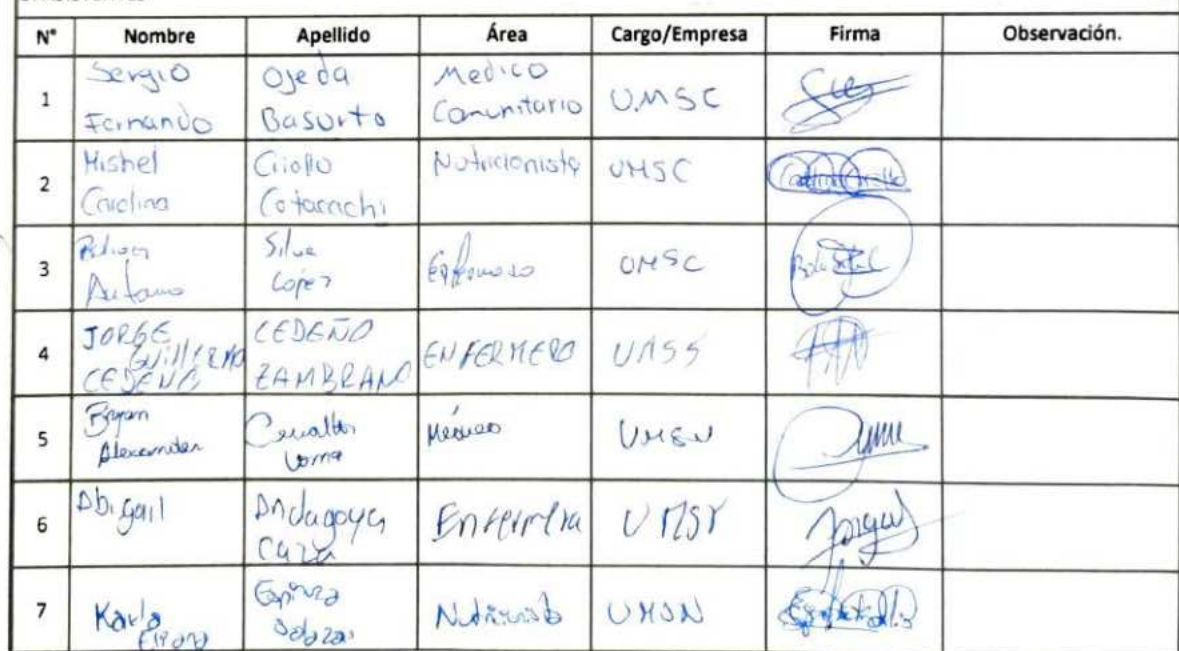 N° Nombre Apellido Área Cargo/Empresa Firma Observación.
1 Sergio Fernando Ojeda Basurto Medico Comunitario U.M.S.C
2 Mishel Carolina Criollo Cotacachi Nutricionista UMSC
3 Antonio Silva López Enfermero UMSC
4 JORGE GUILLERMO CEDEÑO CEDEÑO ZAMBRANO ENFERMERO UMSS
5 Bryan Alexander Cevallos Médico UMSN
6 Abigail Andagoya Enfermera
7 Karla Espinoza Salazar Nutricionista UMSN